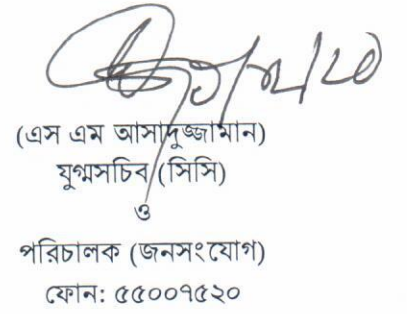 (এস এম আসাদুজ্জামান)
যুগ্মসচিব (সিসি)
ও
পরিচালক (জনসংযোগ)
ফোন: ৫৫০০৭৫২০